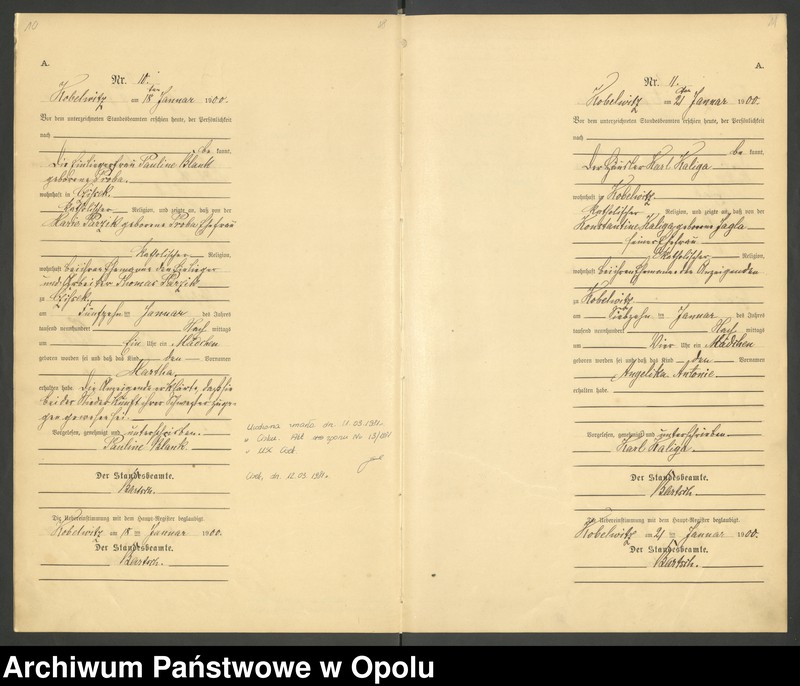 10
A.
Nr. 10.
Kobelwitz am 18 ten Januar 1900.
Vor dem unterzeichneten Standesbeamten erschien heute, der Persönlichkeit
nach
be kannt,
die Einliegerfrau Pauline Blank
geborene Proba.
wohnhaft in Czissek.
katholischer Religion, und zeigte an, daß von der
Maria Parzik geborene Proba Ehefrau
katholischer Religion,
wohnhaft bei ihrem Ehemanne dem Einlieger
und Arbeiter Thomas Parzik
zu Czissek,
am fünfzehn ten Januar des Jahres
tausend neunhundert Nach mittags
um Ein Uhr ein Mädchen
geboren worden sei und daß das Kind den Vornamen
Martha
erhalten habe. Die Anzeigende erklärte, daß sie
bei der Niederkunft ihrer Schwester zuge-
gen gewesen sei.
Vorgelesen, genehmigt und unterschrieben.
Pauline Blank
Der Standesbeamte.
Bartsch.
Die Uebereinstimmung mit dem Haupt-Register beglaubigt.
Kobelwitz am 18 ten Januar 1900.
Der Standesbeamte.
Bartsch.
zmarła dn. 11.03.1981.
Akt zgonu Nr 13/1981
USC
dn. 12.03.1981.
A.
Nr. 11.
Kobelwitz am 21 ten Januar 1900.
Vor dem unterzeichneten Standesbeamten erschien heute, der Persönlichkeit
nach
be kannt,
der Häusler Karl Kaliga
wohnhaft zu Kobelwitz
katholischer Religion, und zeigte an, daß von der
Konstantine Kaliga geborene Jagla
seiner Ehefrau
katholischer Religion,
wohnhaft bei ihrem Ehemanne dem Anzeigenden
zu Kobelwitz
am siebzehn ten Januar des Jahres
tausend neunhundert Nach mittags
um Vier Uhr ein Mädchen
geboren worden sei und daß das Kind den Vornamen
Angelika Antonie
erhalten habe.
Vorgelesen, genehmigt und unterschrieben.
Karl Kaliga.
Der Standesbeamte.
Bartsch.
Die Uebereinstimmung mit dem Haupt-Register beglaubigt.
Kobelwitz am 21 ten Januar 1900.
Der Standesbeamte.
Bartsch.
Archiwum Państwowe w Opolu